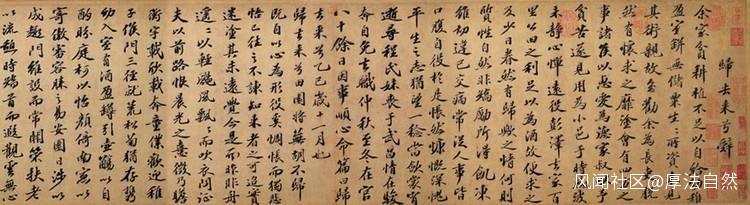 歸去來兮辞
余家貧耕植不足以自給
盈室缾無儲粟生生所資
其術親故多勸余為長吏脫
然有懷求之靡途會有四
事諸侯以惠愛為德家叔
貧苦遂見用為小邑于時
未靜心憚遠役彭澤去家百
里公田之利足以為酒故便求之
及少日眷然有歸歟之情何則
質性自然非矯勵所得飢凍
雖切違己交病嘗從人事皆
口腹自役於是悵然慷慨深愧
平生之志猶望一稔當斂裳宵
逝尋程氏妹喪于武昌情在駿
奔自免去職仲秋至冬在官
八十餘日因事順心命篇曰歸
去來兮乙巳歲十一月也
歸去來兮田園將蕪胡不歸
既自以心為形役奚惆悵而獨悲
悟已往之不諫知來者之可追實
迷塗其未遠覺今是而昨非舟
遥〻以輕颺風飄〻而吹衣問征
夫以前路恨晨光之熹微乃瞻
衡宇載欣載奔童僕歡迎稚
子候門三徑就荒松菊猶存携
幼入室有酒盈罇引壺觴以自
酌眄庭柯以怡顔倚南窗以
寄傲審容膝之易安園日涉以
成趣門雖設而常關策扶老
以流憩時矯首而遐觀雲無心
风闻社区@厚法自然